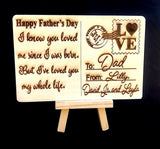 Happy Father's Day
I know you loved
me since I was born.
But I've loved you
my whole life.
LOVE
To: Dad
From: Lilly,
David Jr and Layla